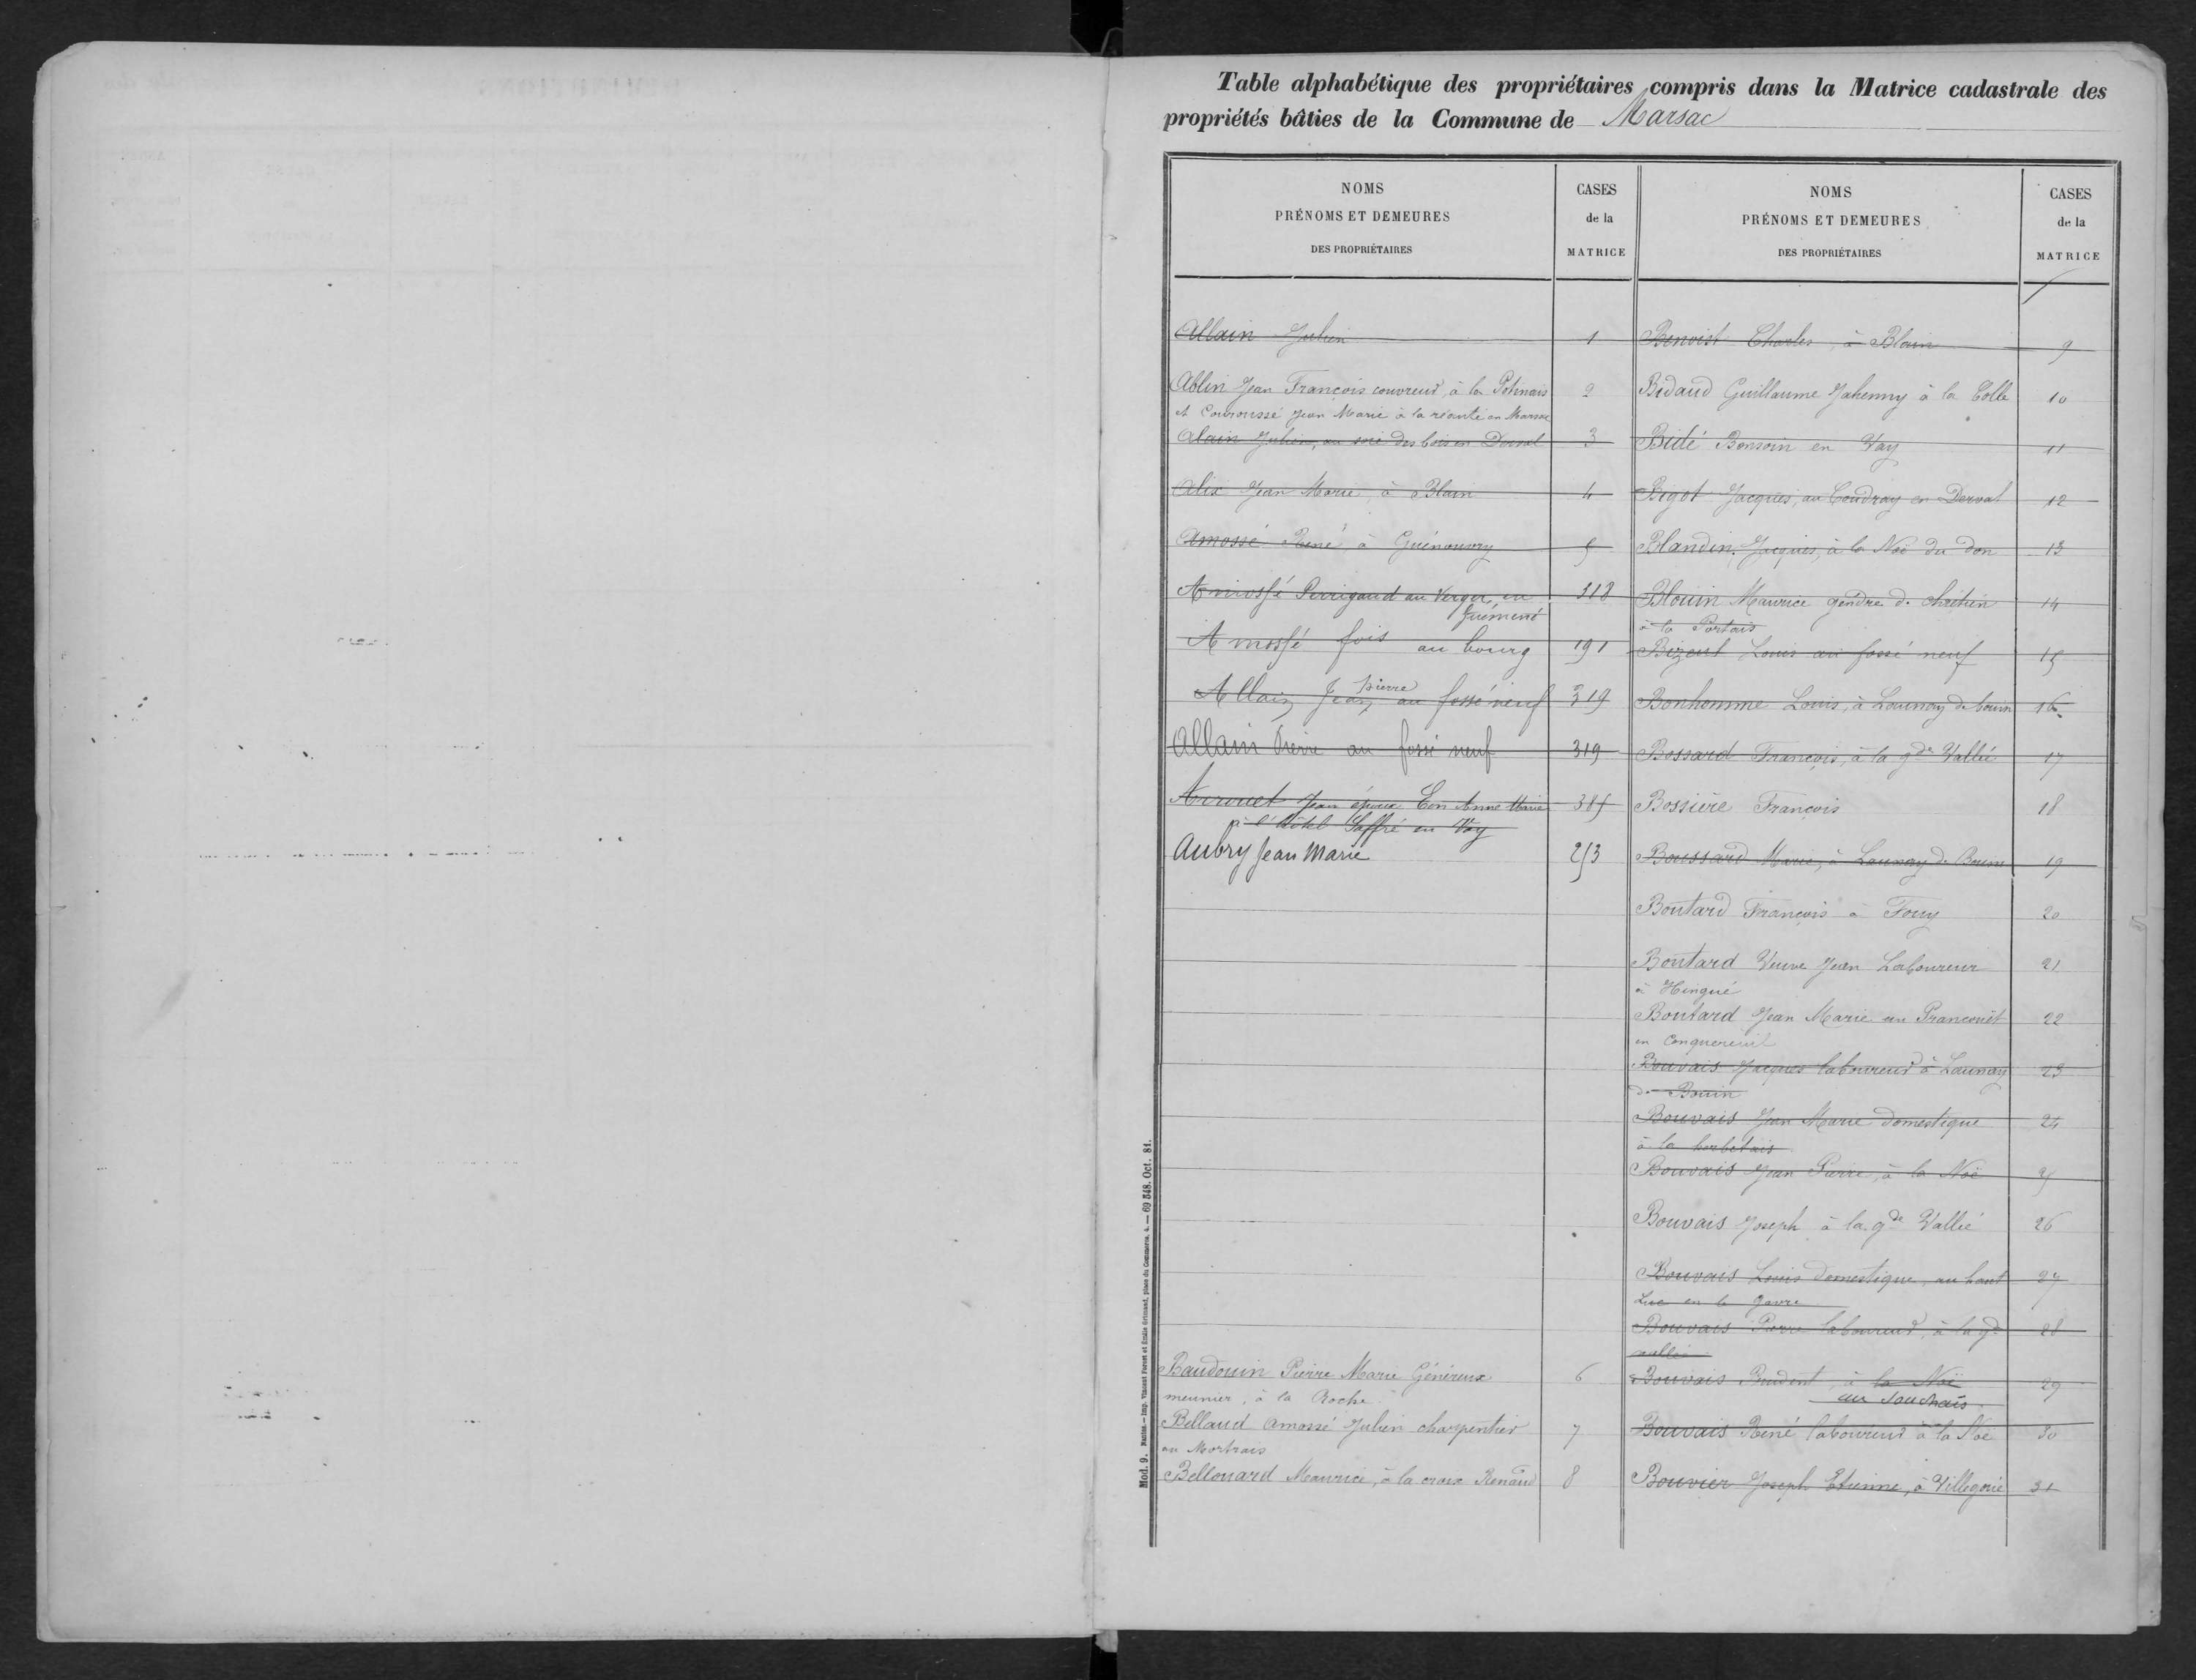 Table alphabétique des propriétaires compris dans la Matrice cadastrale des
propriétés bâties de la Commune de Marsac
NOMS
PRÉNOMS ET DEMEURES
DES PROPRIÉTAIRES
CASES
de la
MATRICE
Allain Julien 1
Ablin Jean François couvreur, à la Potinais 2
et Couroussé Jean Marie à la réauté en Marsac
Alain Julien, au des bois en Derval 3
Alix Jean Marie, à Blain 4
Amossé René, à Guénouvry 5
Amossé Perrigaud au Verger, en 318
Guémené
Amossé fois au bourg 191
Allain Jean pierre au fossé neuf 319
Allain Pierre au fossé neuf 319
Jean époux Eon Anne Marie
à l'Hôtel Saffré en Vay
Aubry Jean Marie 253
Baudouin Pierre Marie Généreux 6
meunier, à la Roche
Bellaud Amossé Julien charpentier 7
au Mortrais
Bellouard Maurice, à la croix Renaud 8
NOMS
PRÉNOMS ET DEMEURES
DES PROPRIÉTAIRES
CASES
de la
MATRICE
Benoist Charles, à Blain 9
Bidaud Guillaume Jahenny à la Colle 10
Bidé Bonsoin en Vay 11
Bigot Jacques, au Coudray en Derval 12
Blandin Jacques, à la Noë du Don 13
Blouin Maurice gendre de chrétien 14
à la Portais
Bizeul Louis au fossé neuf 15
Bonhomme Louis, à Launay de bouin 16
Bossard François, à la gde Vallée 17
Bossière François 18
Boussard Marie, à Launay de Bouin 19
Boutard François à Fouy 20
Boutard Veuve Jean Laboureur 21
à Hingué
Boutard Jean Marie au Pranconët 22
en Conquereuil
Bouvais Jacques laboureur à Launay 23
de Bouin
Bouvais Jean Marie domestique 24
à la
Bouvais Jean Pierre, à la Noë 25
Bouvais Joseph à la gde Vallée 26
Bouvais Louis domestique, au haut 27
Luc en le Gavre
Bouvais Pierre laboureur, à la gde 28
vallée
Bouvais Prudent, à la Noë 29
au Souchais
Bouvais René laboureur à la Noë 30
Bouvier Joseph Etienne, à Villegorie 31
Mod. 9. Nantes.— Imp. Vincent Forest et Émile Grimaud, place du Commerce, 4. — 69 548. Oct. 81.